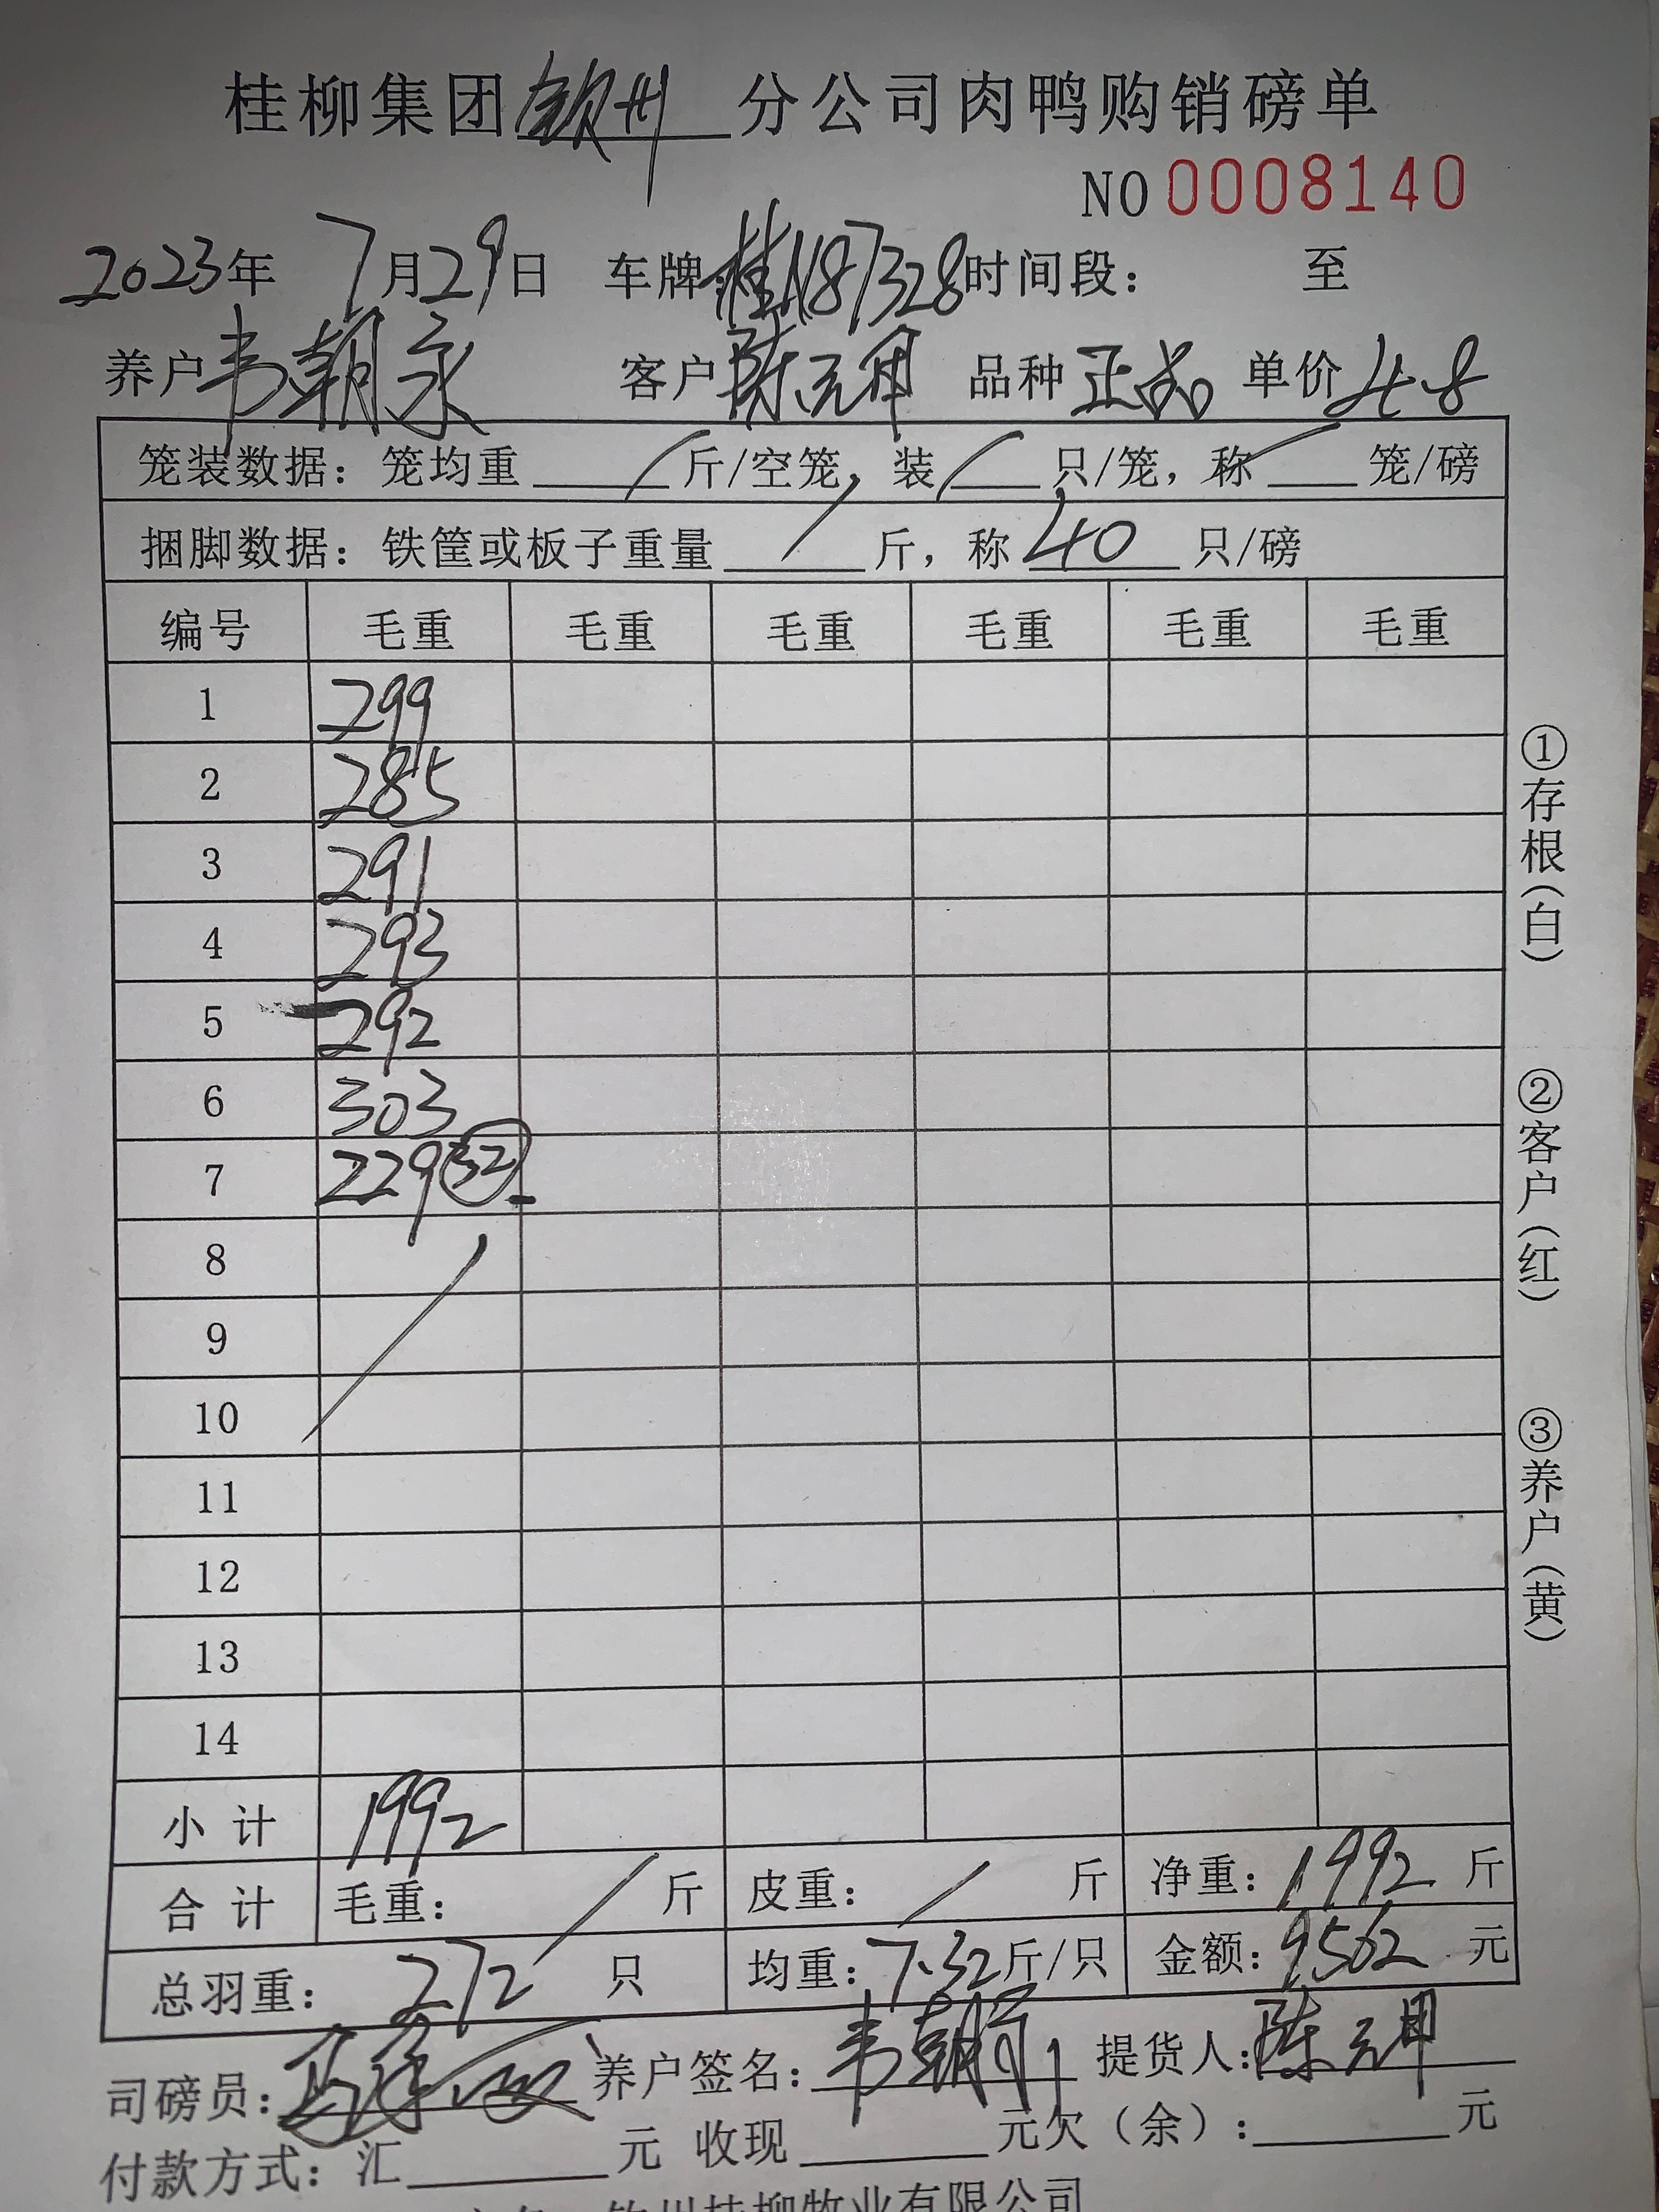 桂柳集团钦州分公司肉鸭购销磅单
NO 0008140
2023年 7月29日 车牌:桂N87328时间段: 至
养户韦朝 客户陈元甲 品种正品 单价4.8
笼装数据:笼均重 / 斤/空笼,装 / 只/笼,称 / 笼/磅
捆脚数据:铁筐或板子重量 / 斤,称 40 只/磅
编号 毛重 毛重 毛重 毛重 毛重 毛重
1 299
2 285
3 291
4 293
5 292
6 303
7 229 32
8
9
10
11
12
13
14
小计 1992
合计 毛重: / 斤 皮重: / 斤 净重:1992 斤
总羽重: 272 只 均重:7.32斤/只 金额:9562 元
司磅员: 养户签名:韦朝 提货人:陈元甲
付款方式:汇 元 收现 元欠(余): 元
钦州桂柳牧业有限公司
①存根(白)
②客户(红)
③养户(黄)